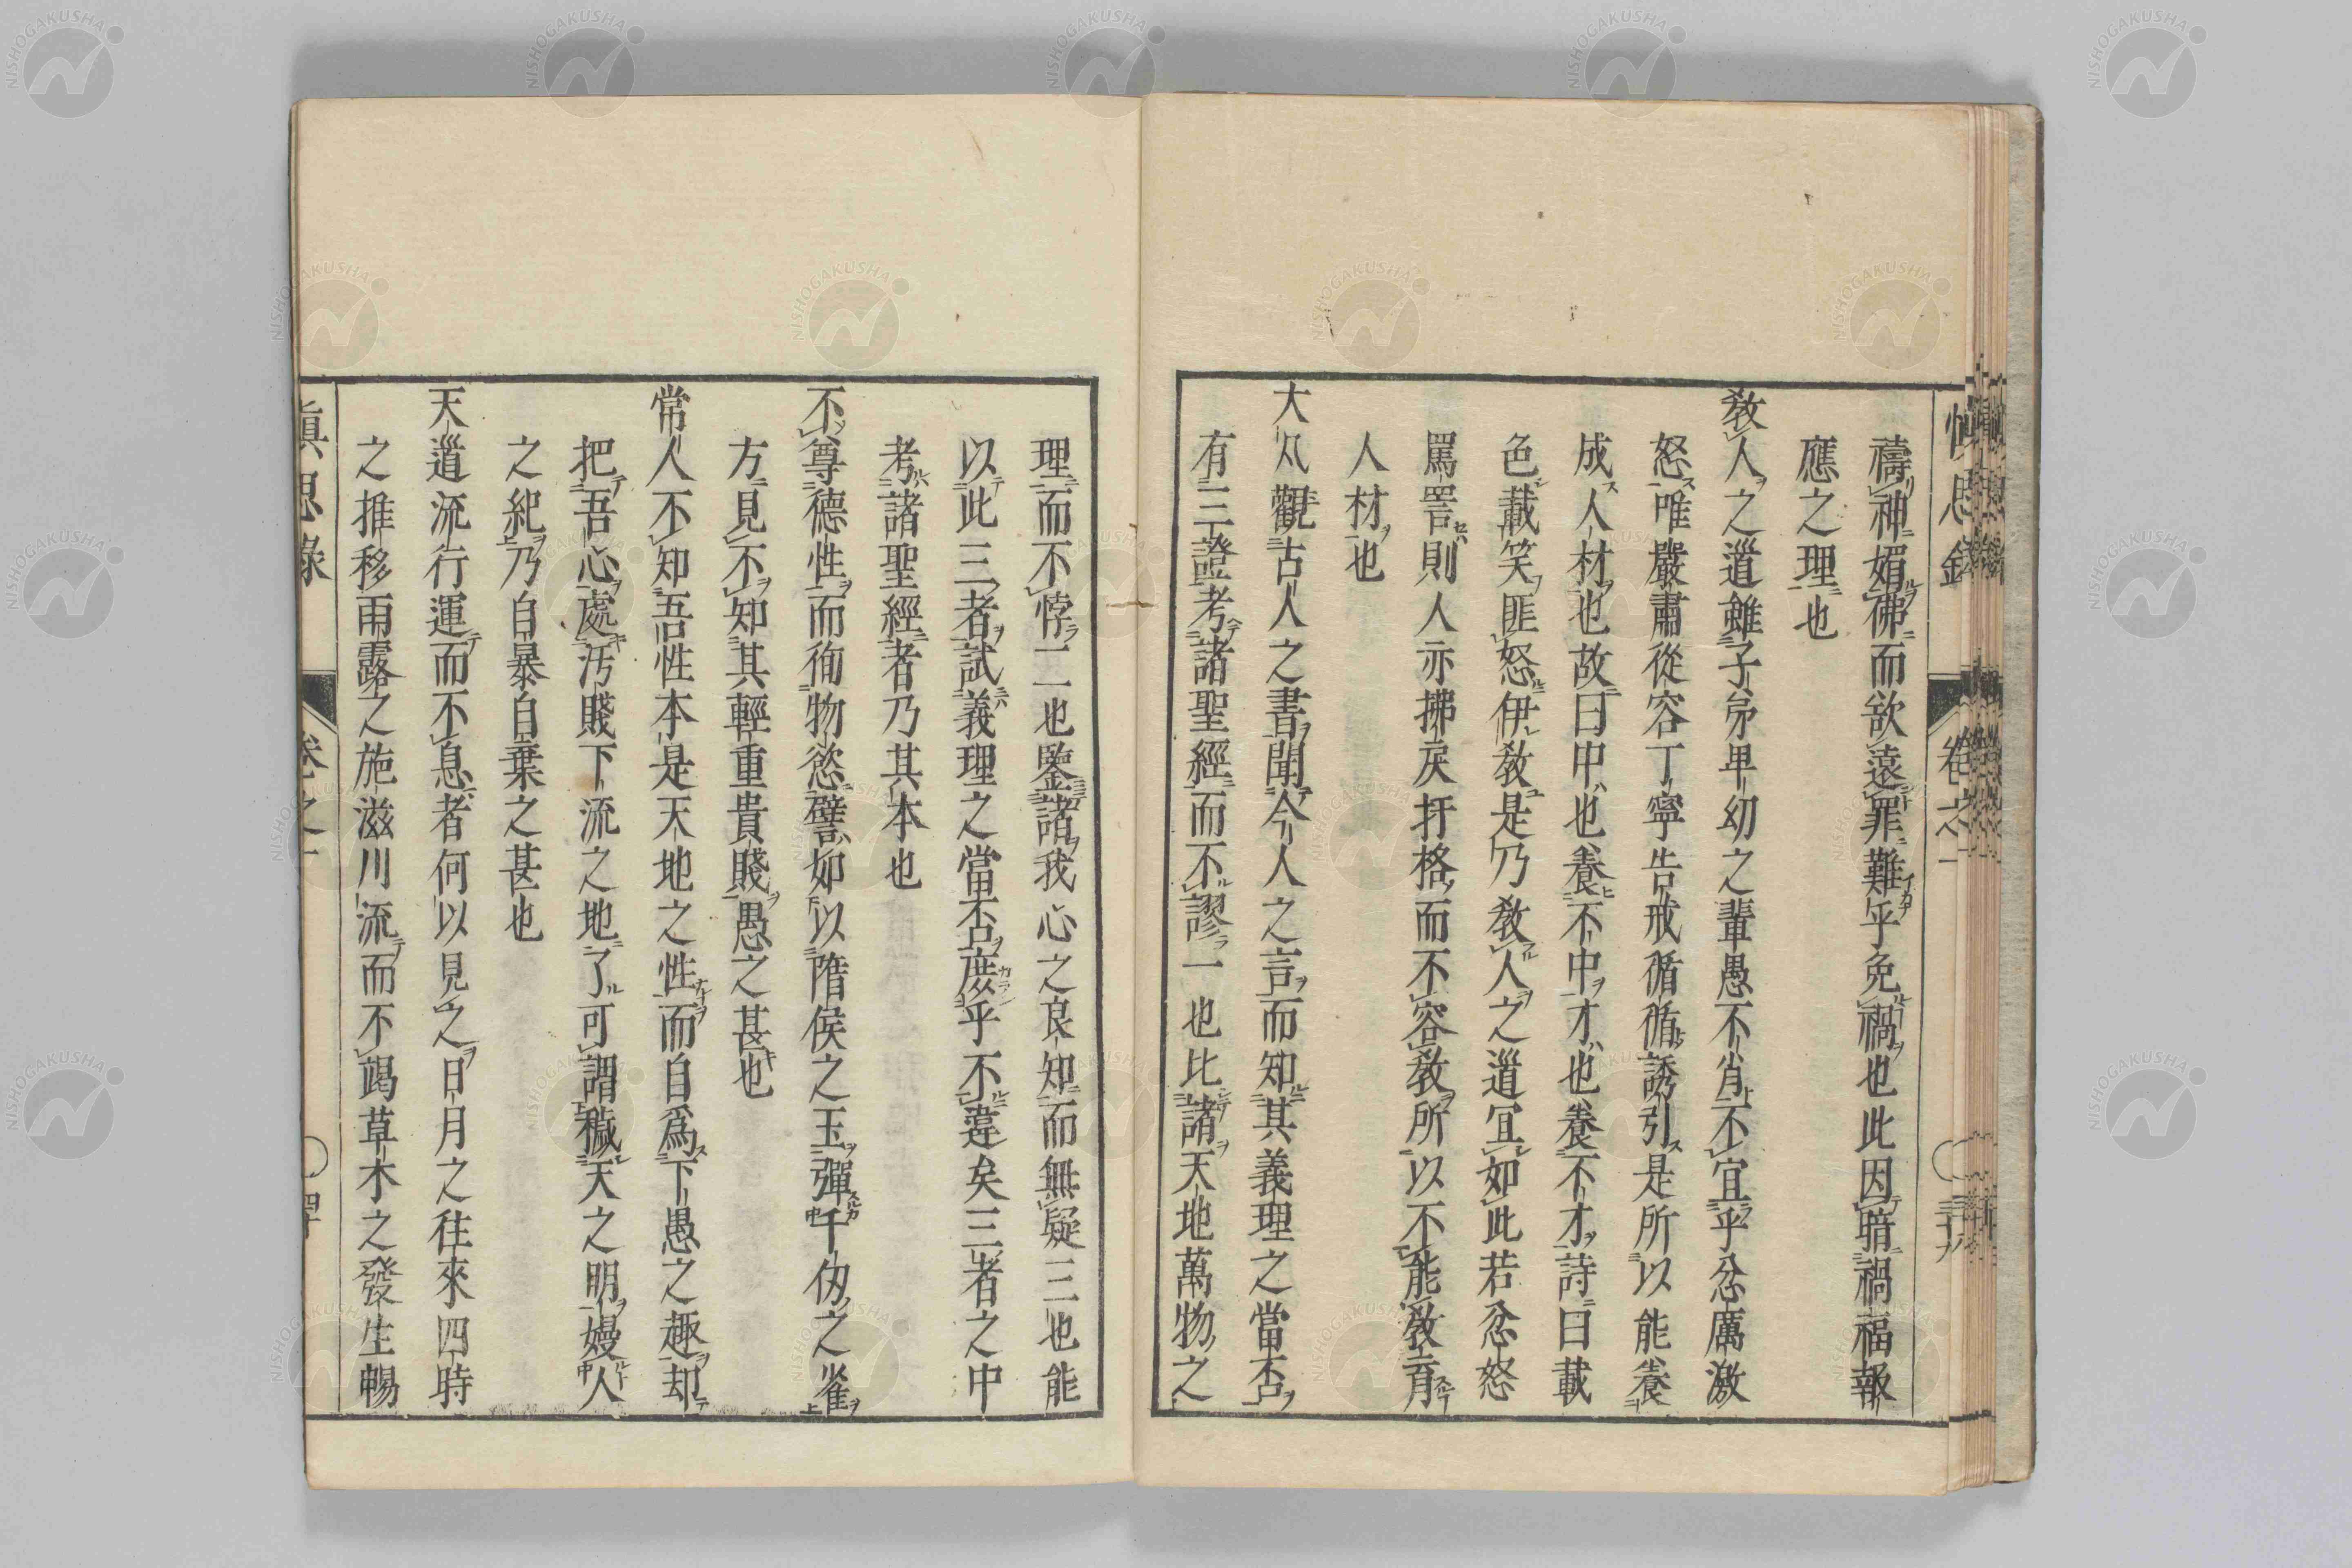 禱神媚佛而欲遠罪難乎免禍也此因暗禍福報
應之理也
敎人之道雖子弟卑幼之輩愚不肖不宜乎忿厲激
怒唯嚴肅從容丁寧告戒循循誘引是所以能養
成人材也故曰中也養不中才也養不才詩曰載
色載笑匪怒伊敎是乃敎人之道宜如此若忿怒
罵詈則人亦拂戾扞格而不容敎所以不能敎育
人材也
大凡觀古人之書聞今人之言而知其義理之當否
有三證考諸聖經而不謬一也比諸天地萬物之
理而不悖二也鑒諸我心之良知而無疑三也能
以此三者試義理之當否庶乎不違矣三者之中
考諸聖經者乃其本也
不尊德性而徇物慾譬如以隋侯之玉彈千仭之雀
方見不知其輕重貴賤愚之甚也
常人不知吾性本是天地之性而自爲下愚之趣却
把吾心處汚賤下流之地了可謂穢天之明嫚人
之紀乃自暴自棄之甚也
天道流行運而不息者何以見之日月之往來四時
之推移雨露之施滋川流而不竭草木之發生暢
愼思錄 卷之一
NISHOGAKUSHA